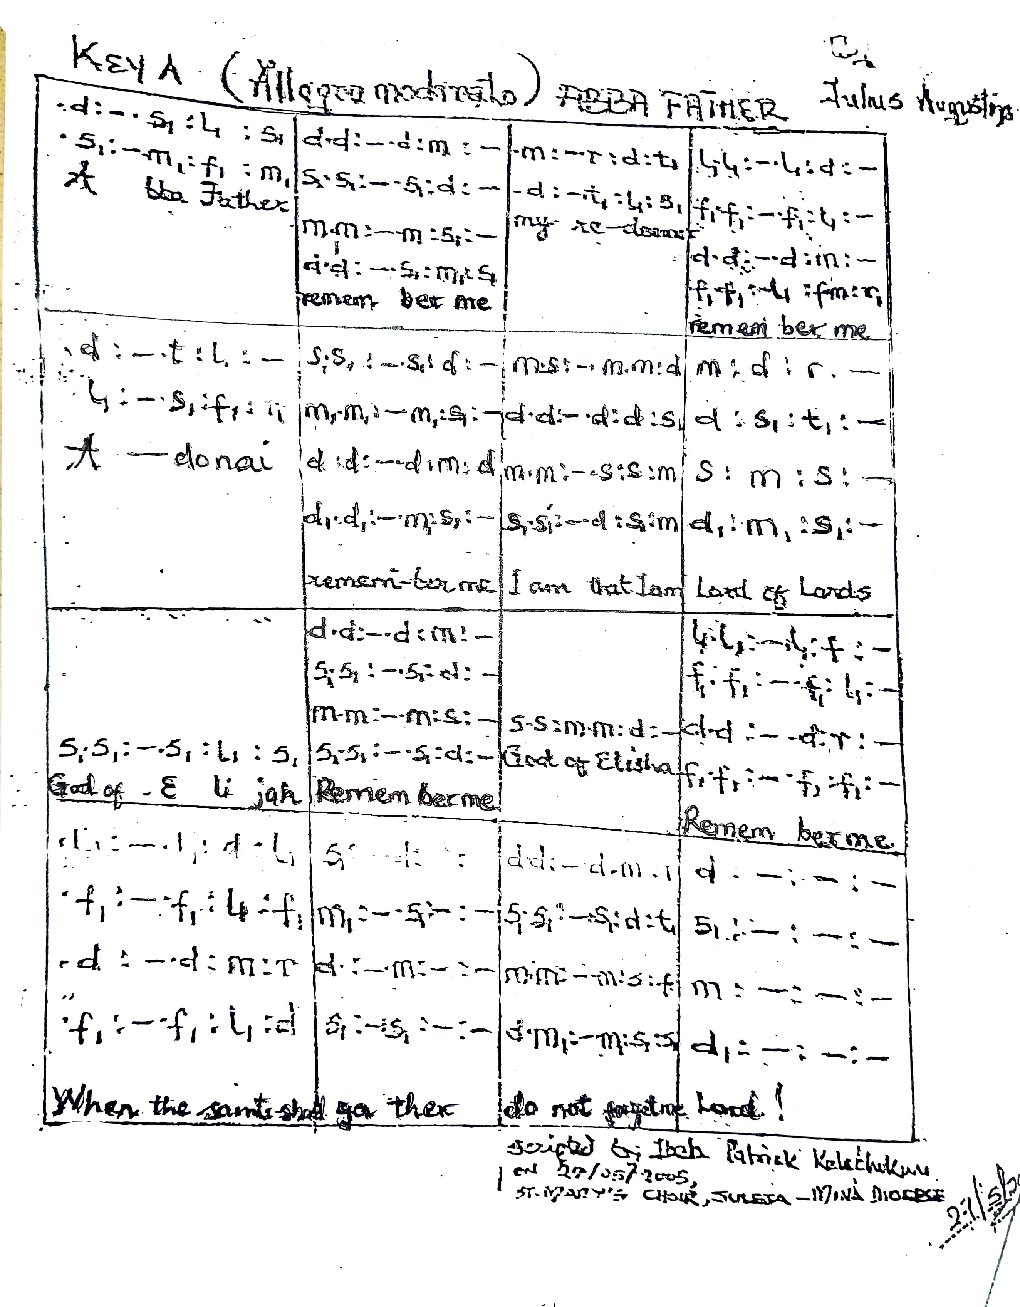 KEY A (Allegro moderato) ABBA FATHER
Julius Augustins
.d:-.s₁:l₁:s₁
.s₁:-.m₁:f₁:m₁
A bba Father
d.d:-.d:m:-
s₁.s₁:-.s₁:d:-
m.m:-.m:s:-
d.d:-.s₁:m₁:s₁
remem ber me
.m:-.r:d:t₁
.d:-.t₁:l₁:s₁
my re-deemer
l₁.l₁:-.l₁:d:-
f₁.f₁:-.f₁:l₁:-
d.d:-.d:m:-
f₁.f₁:-.l₁:fm:r₁
remem ber me
.d:-.t:l:-
l₁:-.s₁:f₁:
A - donai
s₁.s₁:-.s₁:d:-
m₁.m₁:-.m₁:s₁:-
d.d:-.d:m:d
d₁.d₁:-.m₁:s₁:-
remem-ber me
m.s:-.m.m:d
d.d:-.d:d:s₁
m.m:-.s:s:m
s₁.s₁:-.d:s₁:m
I am that I am
m:d:r.-
d:s₁:t₁:-
s:m:s:-
d₁:m₁:s₁:-
Lord of Lords
s₁.s₁:-.s₁:l₁:s₁
God of - E li jah
d.d:-.d:m:-
s₁.s₁:-.s₁:d:-
m.m:-.m:s:-
s₁.s₁:-.s₁:d:-
Remem ber me
s.s:m.m:d:-
God of Elisha
l₁.l₁:-.l₁:f:-
f₁.f₁:-.f₁:l₁:-
d.d:-.d:r:-
f₁.f₁:-.f₁:f₁:-
Remem ber me
.f₁:-.f₁:l₁:f₁
.d:-.d:m:r
.f₁:-.f₁:l₁:d
When the saints shall ga ther
m₁:-.s₁:-:-
d:-.m:-:-
s₁:-.s₁:-:-
d.d:-.d.m.
s₁.s₁:-.s₁:d:t₁
m.m:-.m:s:f
d.m₁:-.m:s₁:s₁
do not forget me Lord!
d.-:-:-
s₁:-:-:-
m:-:-:-
d₁:-:-:-
scripted by Ibeh Patrick Kelechukwu
on 27/05/2005,
ST. MARY'S CHOIR, SULEJA - MINA DIOCESE